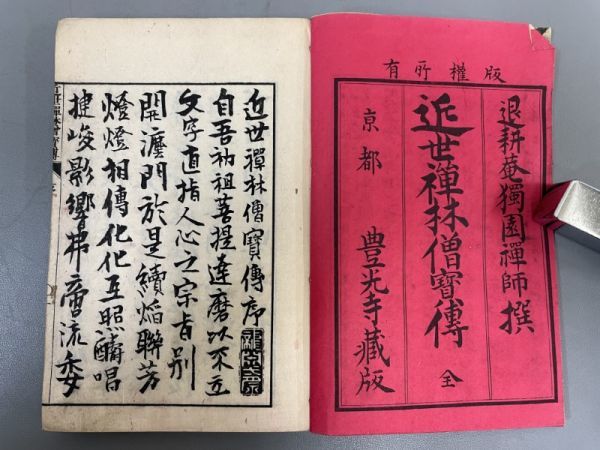 版權所有
退耕菴獨園禪師撰
近世禪林僧寶傳
全
京都
豊光寺藏版
近世禪林僧寶傳序
自吾初祖菩提達磨以不立
文字直指人心之宗旨別
開灋門於是續焰聯芳
燈燈相傳化化互照酬唱
揵峻影響弗啻流委